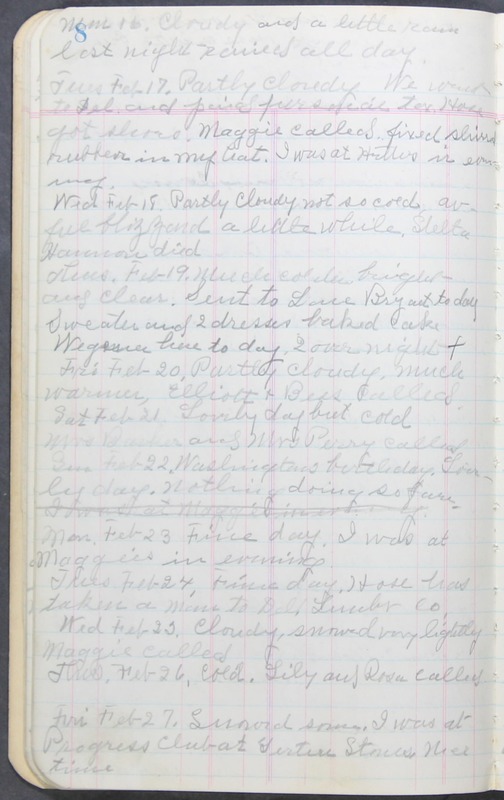 8
Mon 16. Cloudy and a little rain
last night rained all day.
Tues Feb 17. Partly Cloudy. We went
to Del. and paid personal tax. Hose
got shoes. Maggie called. fixed
rubber in my hat. I was at in even-
ing.
Wed Feb 18. Partly Cloudy not so cold. aw-
ful blizzard a little while. Stella
Hannon died
Thus. Feb 19. Much colder bright
and clear. Sent to Lane Bryant to day
Sweater and 2 dresses baked cake
here to day. 2 over night +
Fri Feb 20, Partly Cloudy. much
warmer, Elliott + Bess Called.
Sat Feb 21. Lovely day but cold
Mrs and Mrs Perry called
Sun Feb 22. Washingtons birthday. Lov-
ly day. nothing doing so far.
I was at Maggies in evening.
Mon. Feb 23 Fine day. I was at
Maggies in evening
Thus Feb 24, Fine day. Hose has
taken a man to Del. Co.
Wed Feb 25. Cloudy, snowed very lightly
Maggie called
Thus. Feb 26, Cold. Lily and Rosa called
Fri Feb 27. Snowed some. I was at
Progress Club at Stones Nice
time